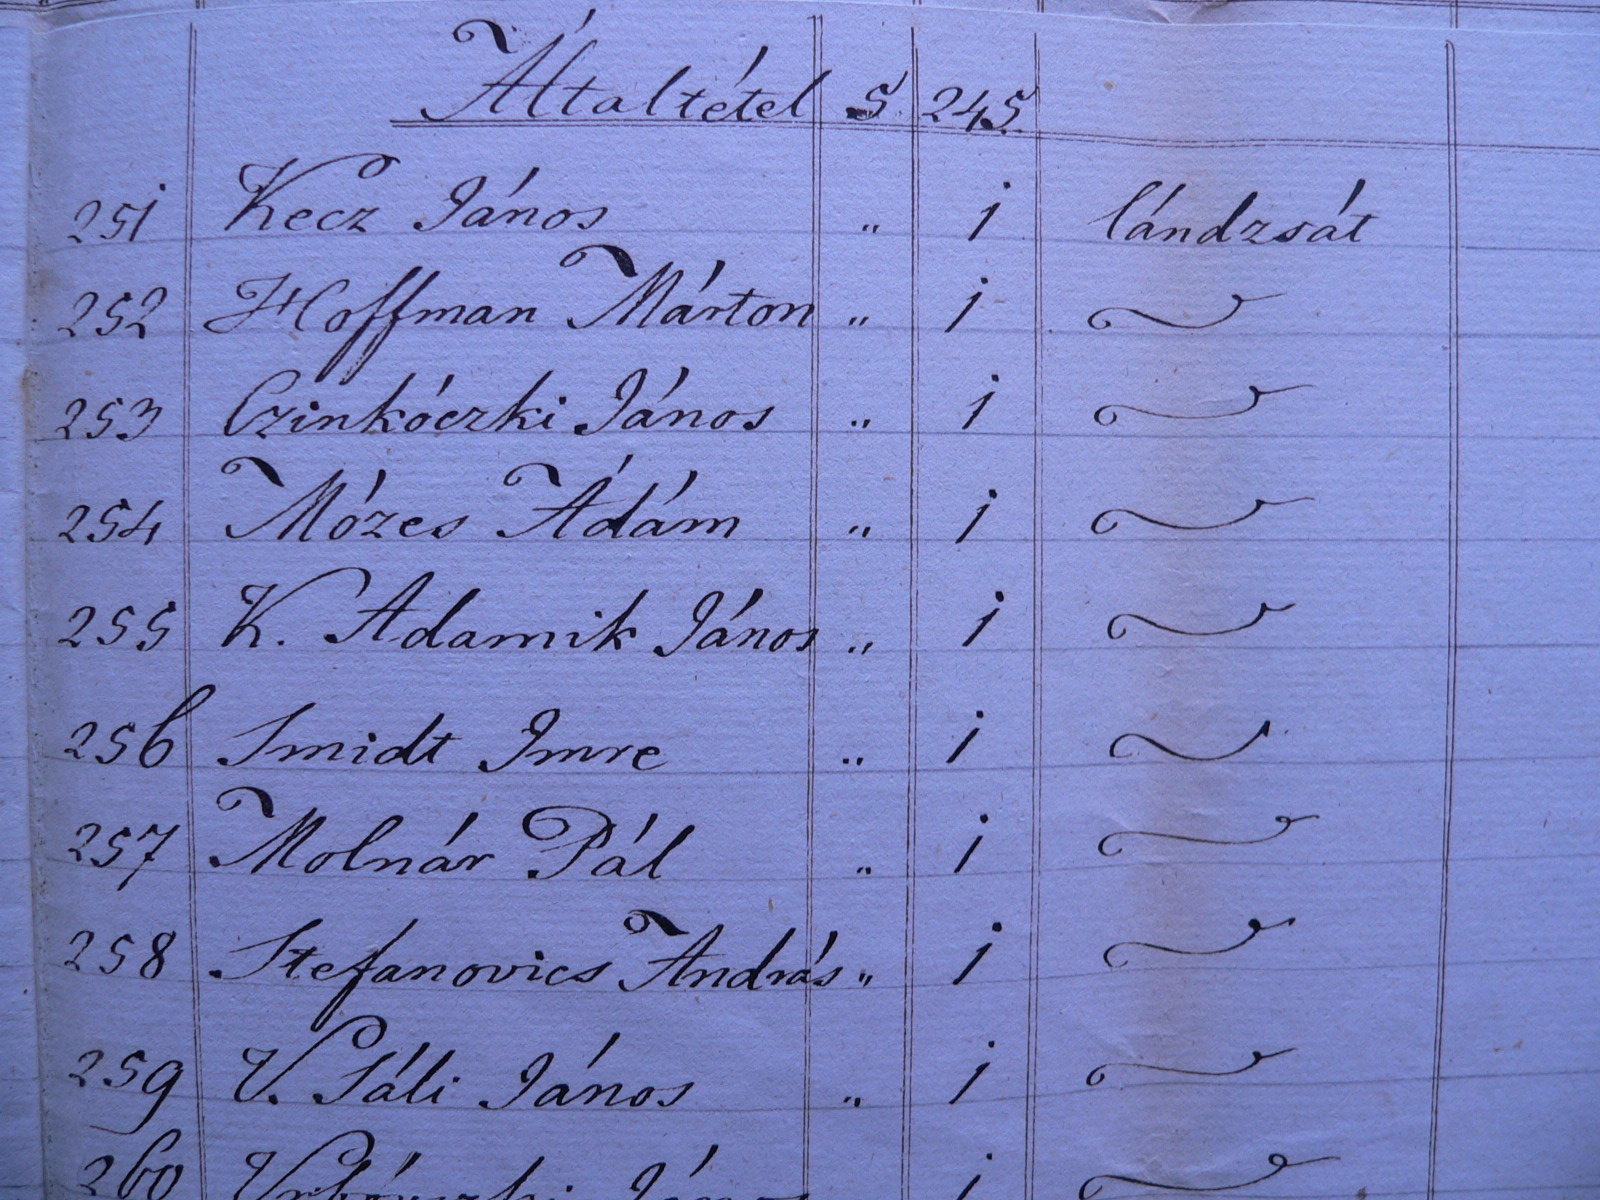 Általtétel 5 245.
251 Kecz János „ 1 lándzsát
252 Hoffman Márton „ 1 ~
253 Czinkóczki János „ 1 ~
254 Mózes Ádám „ 1 ~
255 K. Adamik János „ 1 ~
256 Smidt Imre „ 1 ~
257 Molnár Pál „ 1 ~
258 Stefanovics András „ 1 ~
259 V. Sáli János „ 1 ~
260 János 1 ~